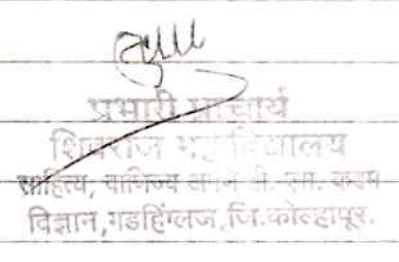 प्रभारी प्राचार्य
शिवराज महाविद्यालय
साहित्य, वाणिज्य आणि डी. एम. कदम
विज्ञान,गडहिंग्लज,जि.कोल्हापूर.